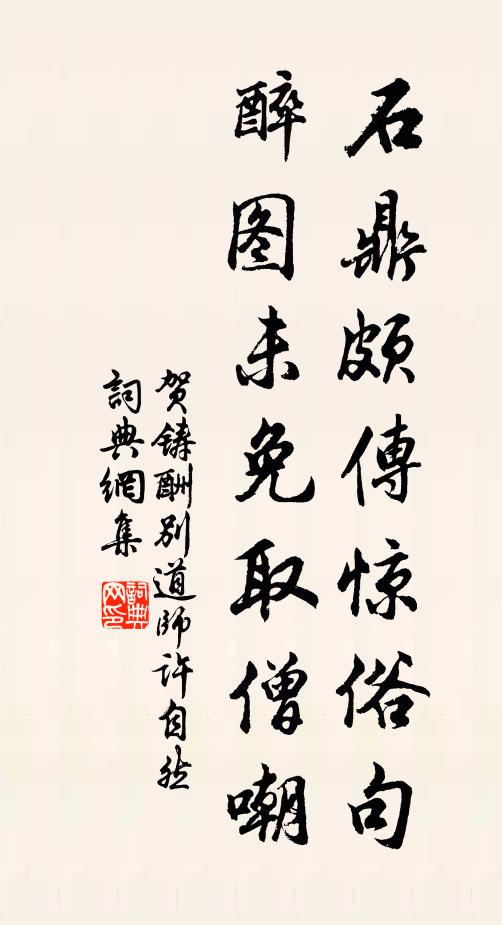 石鼎頗傳惊俗句
醉图未免取僧嘲
贺铸酬别道师许自然
詞典網集
詞典网印